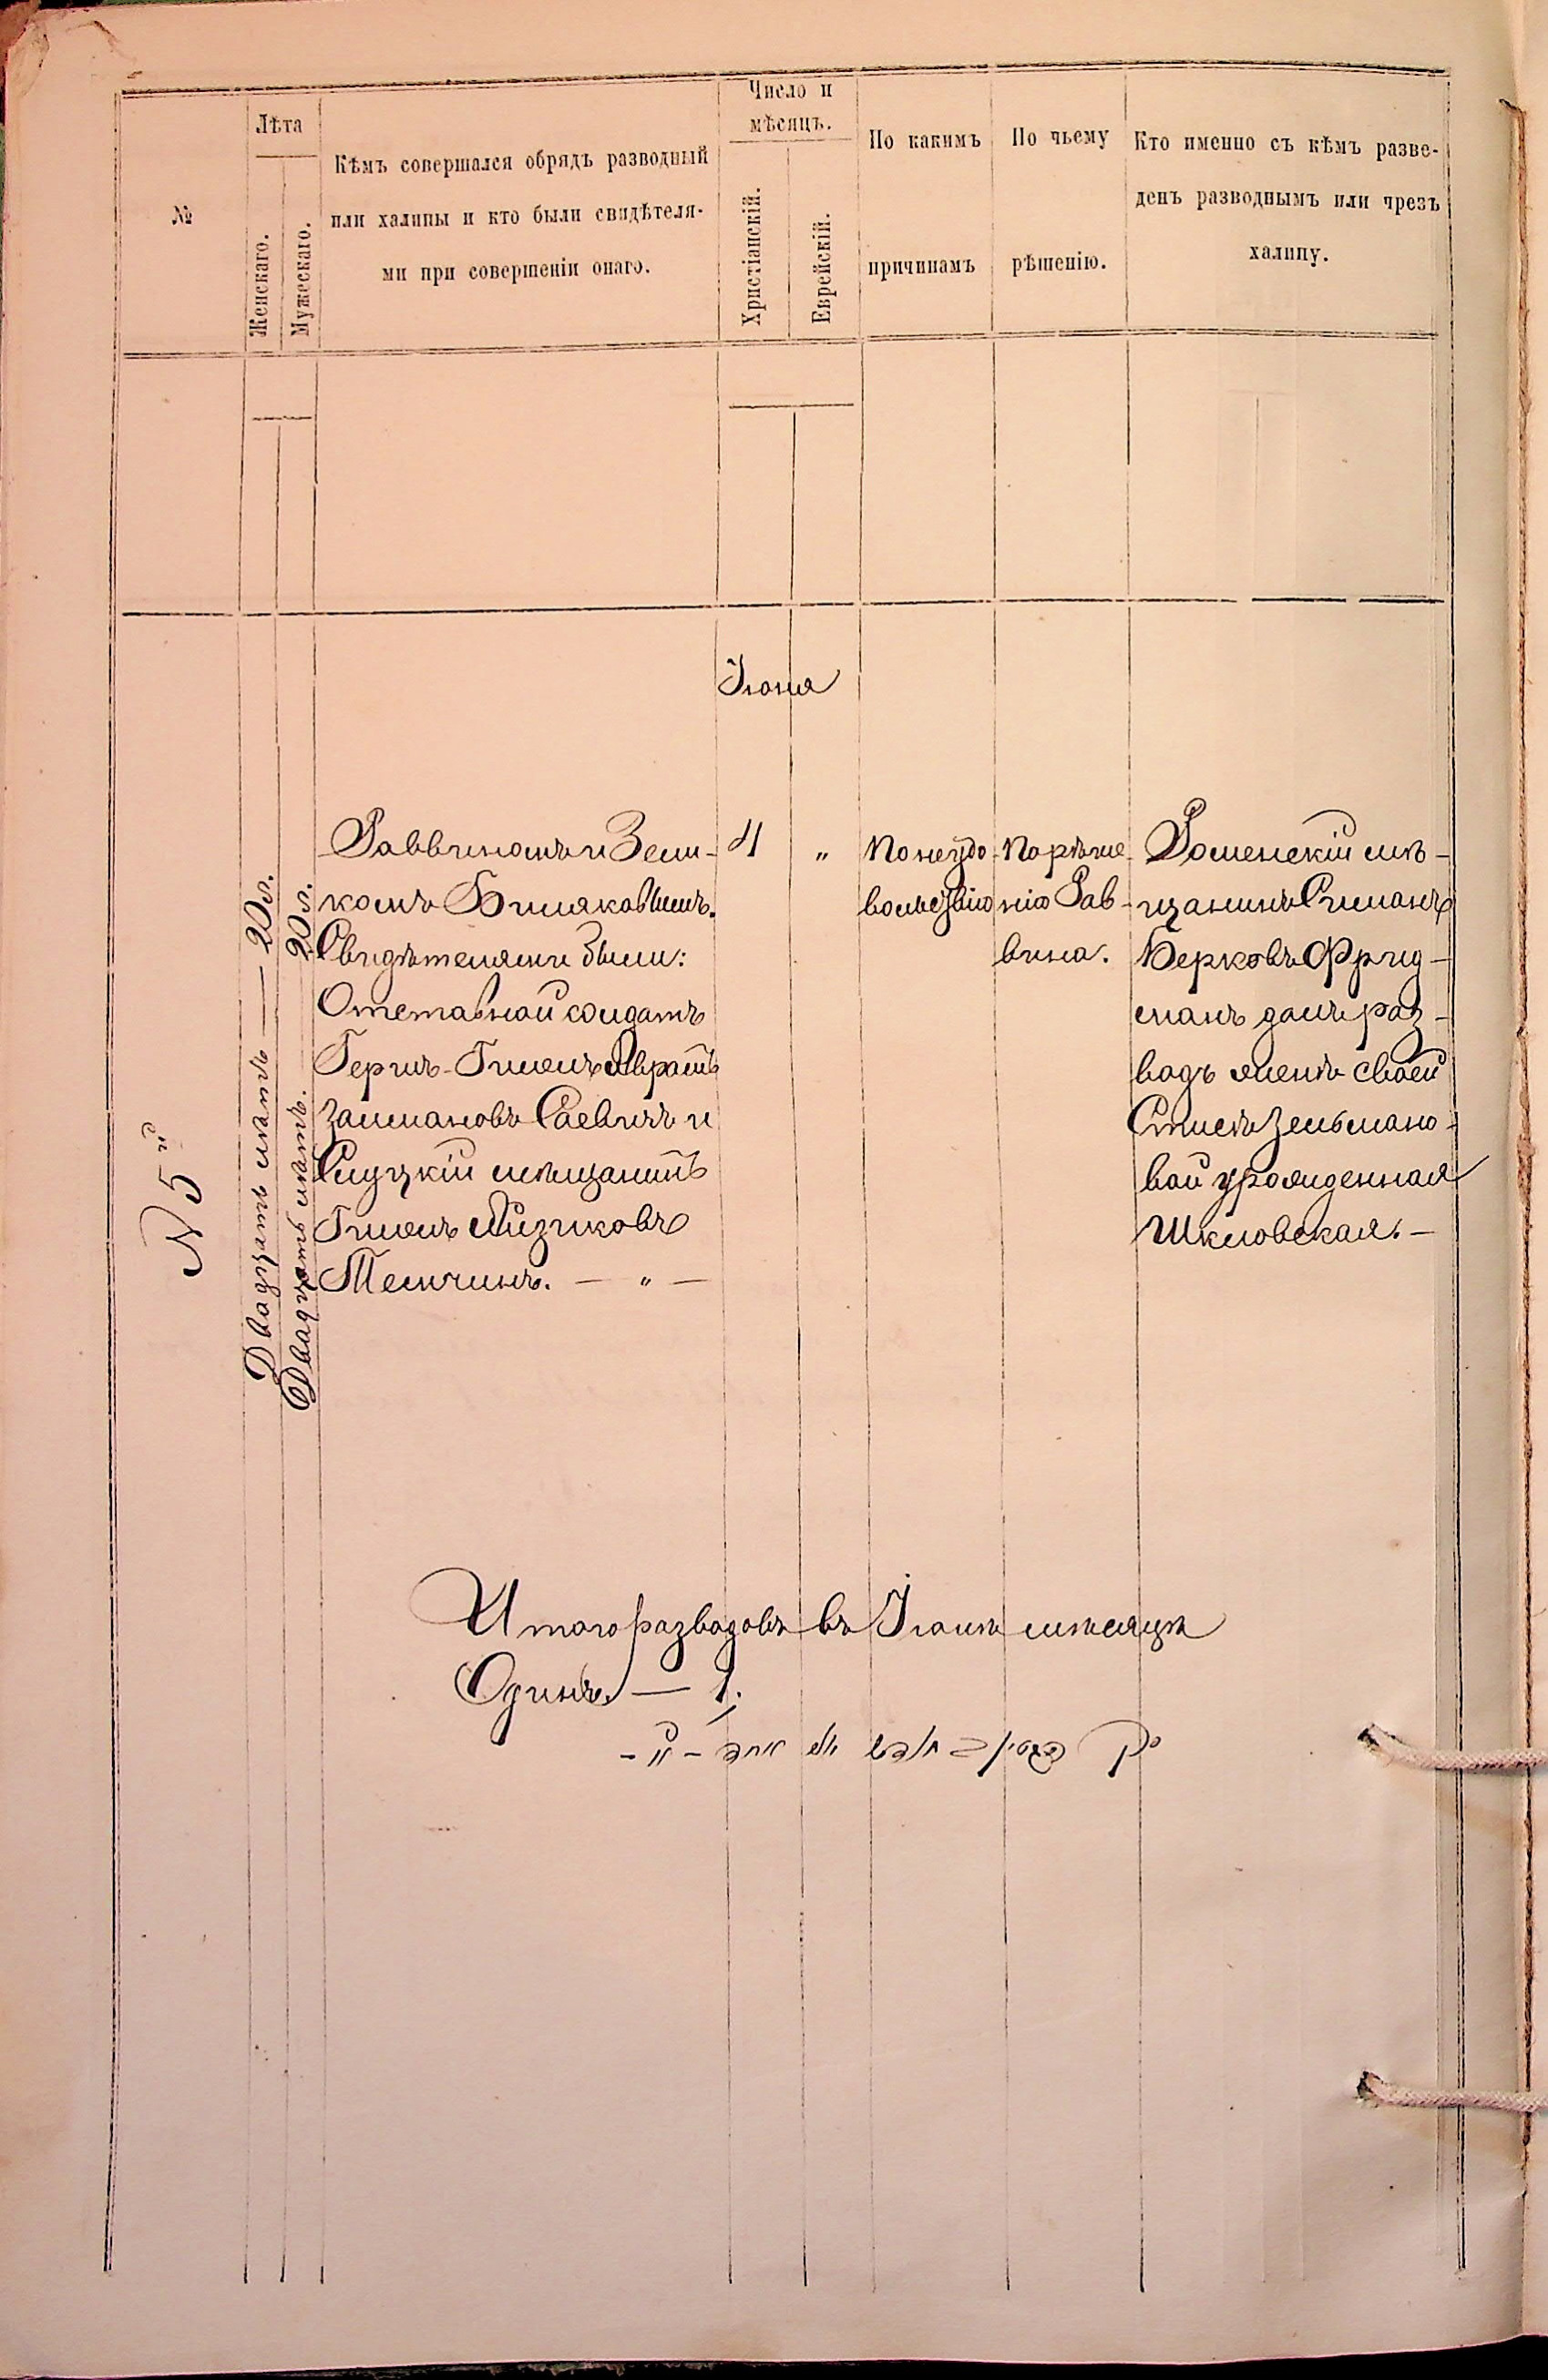 №
Лѣта
Женскаго.
Мужескаго.
Кѣмъ совершался обрядъ разводный
или халицы и кто были свидѣтеля-
ми при совершеніи онаго.
Число и
мѣсяцъ.
Христіанскій.
Еврейскій.
По какимъ
причинамъ
По чьему
рѣшенію.
Кто именно съ кѣмъ разве-
денъ разводнымъ или чрезъ
халицу.
Іюня
№ 5й
Двадцать лѣтъ — 20 л.
Двадцать лѣтъ. 20 л.
Раввиномъ и Зели-
комъ
Свидѣтелями были:
Отставной солдатъ
Гершъ-Гимель
Залмановъ Саевичъ и
Слуцкій мѣщанинъ
Гимель Айзиковъ
Темчинъ. — „ —
4
„
По неудо-
вольствію
По рѣше-
нію Рав-
вина.
Роменскій мѣ-
щанинъ Симанъ
Берковъ Фрид-
манъ далъ раз-
водъ женѣ своей
Зельмано-
вой урожденная
Шкловская. —
Итого разводовъ въ Іюнѣ мѣсяцѣ
Одинъ. — 1.